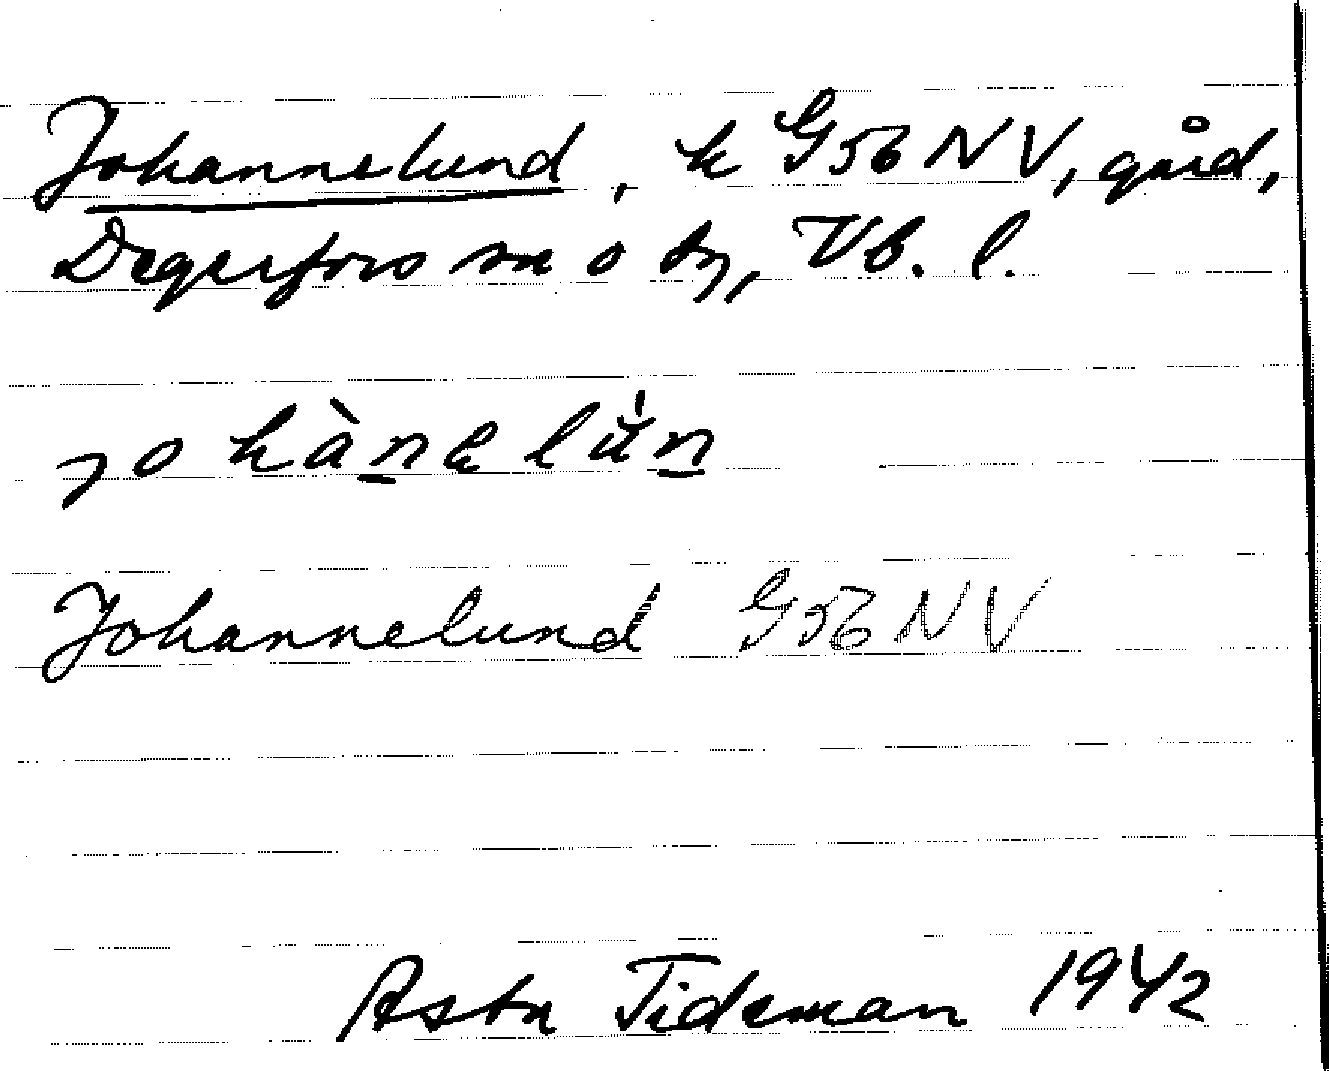 Johannelund, k G56 NV, gård,
Degerfors sn o by, Vb. l.
Johannelund G56 NV
Asta Tideman 1942